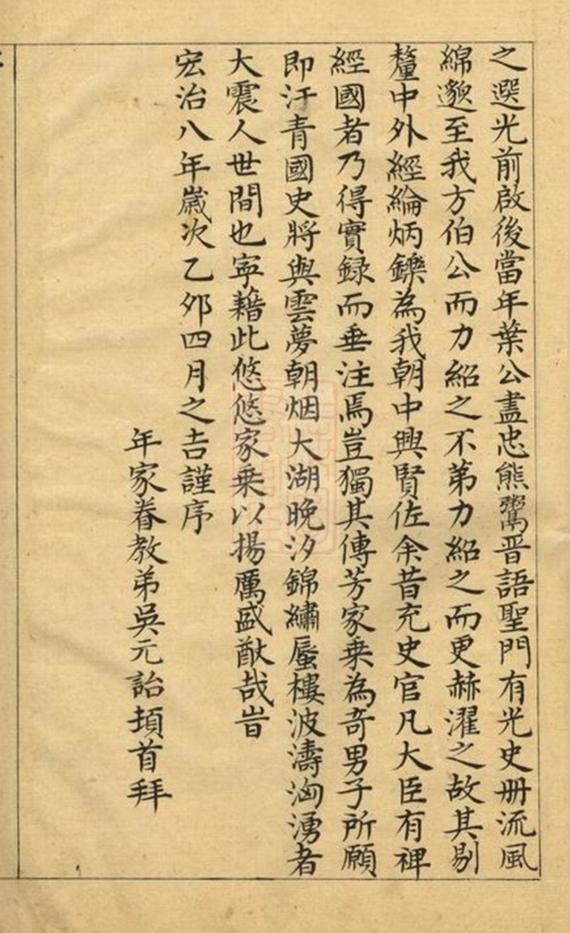 之選光前啟後當年葉公盡忠熊鸞晋語聖門有光史冊流風
綿邈至我方伯公而力紹之不苐力紹之而更赫濯之故其剔
釐中外經綸炳鑠為我朝中興賢佐余昔充史官凡大臣有裨
經國者乃得實録而垂注焉豈獨其傳芳家乗為奇男子所願
即汗青國史將與雲夢朝烟大湖晚汐錦繡蜃樓波濤洶湧者
大震人世間也寜藉此悠悠家乗以揚厲盛猷哉旹
宏治八年嵗次乙夘四月之吉謹序
年家眷教弟吳元詒頊首拜